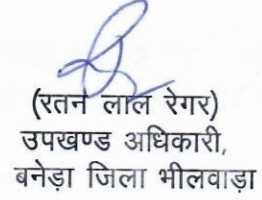 (रतन लाल रेगर)
उपखण्ड अधिकारी,
बनेड़ा जिला भीलवाड़ा